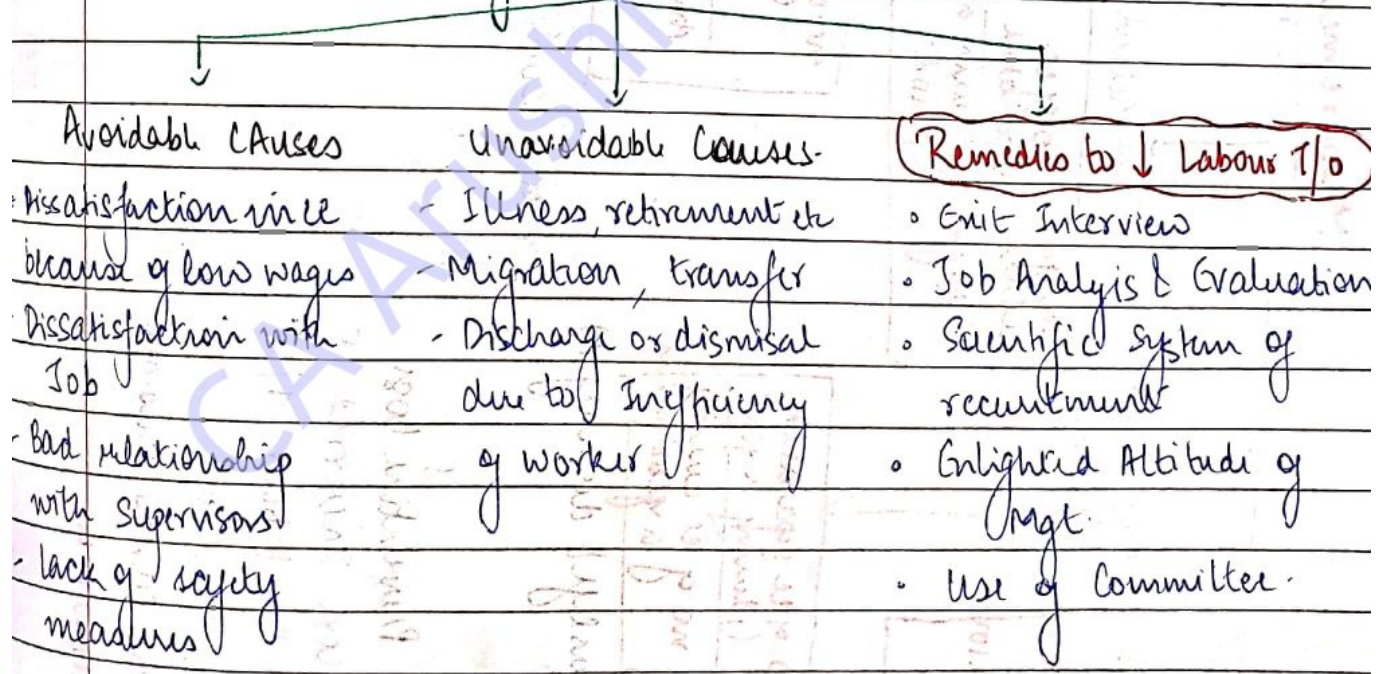 Avoidable CAuses
- Dissatisfaction in ee
because of low wages
- Dissatisfaction with
Job
- Bad relationship
with Supervisors
- lack of safety
measures
Unavoidable Causes-
- Illness, retirement etc
- Migration, transfer
- Discharge or dismisal
due to Inefficiency
of worker
Remedies to ↓ Labour T/o
• Exit Interview
• Job Analyis & Evaluation
• Scientific System of
recruitment
• Enlighted Attitude of
Mgt.
• Use of Committee.
CA Arushi